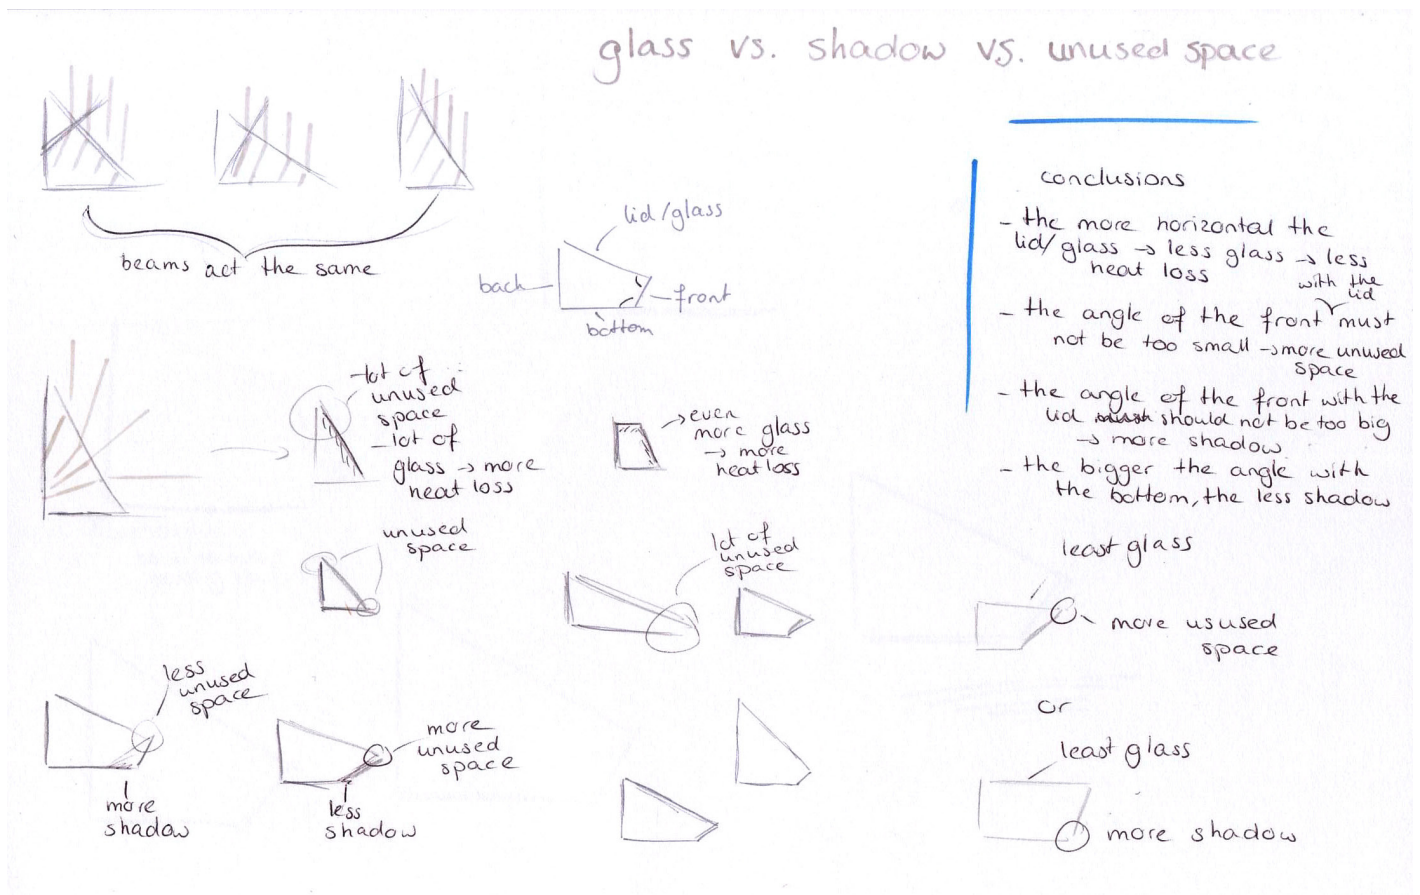 glass vs. shadow vs. unused space
beams act the same
lid/glass
back
front
bottom
-lot of
unused
space
-lot of
glass → more
heat loss
→ even
more glass
→ more
heat loss
unused
space
lot of
unused
space
less
unused
space
more
shadow
more
unused
space
less
shadow
conclusions
- the more horizontal the
lid/glass → less glass → less
heat loss
with the
lid
- the angle of the front must
not be too small → more unused
space
- the angle of the front with the
lid should not be too big
→ more shadow
- the bigger the angle with
the bottom, the less shadow
least glass
more usused
space
or
least glass
more shadow